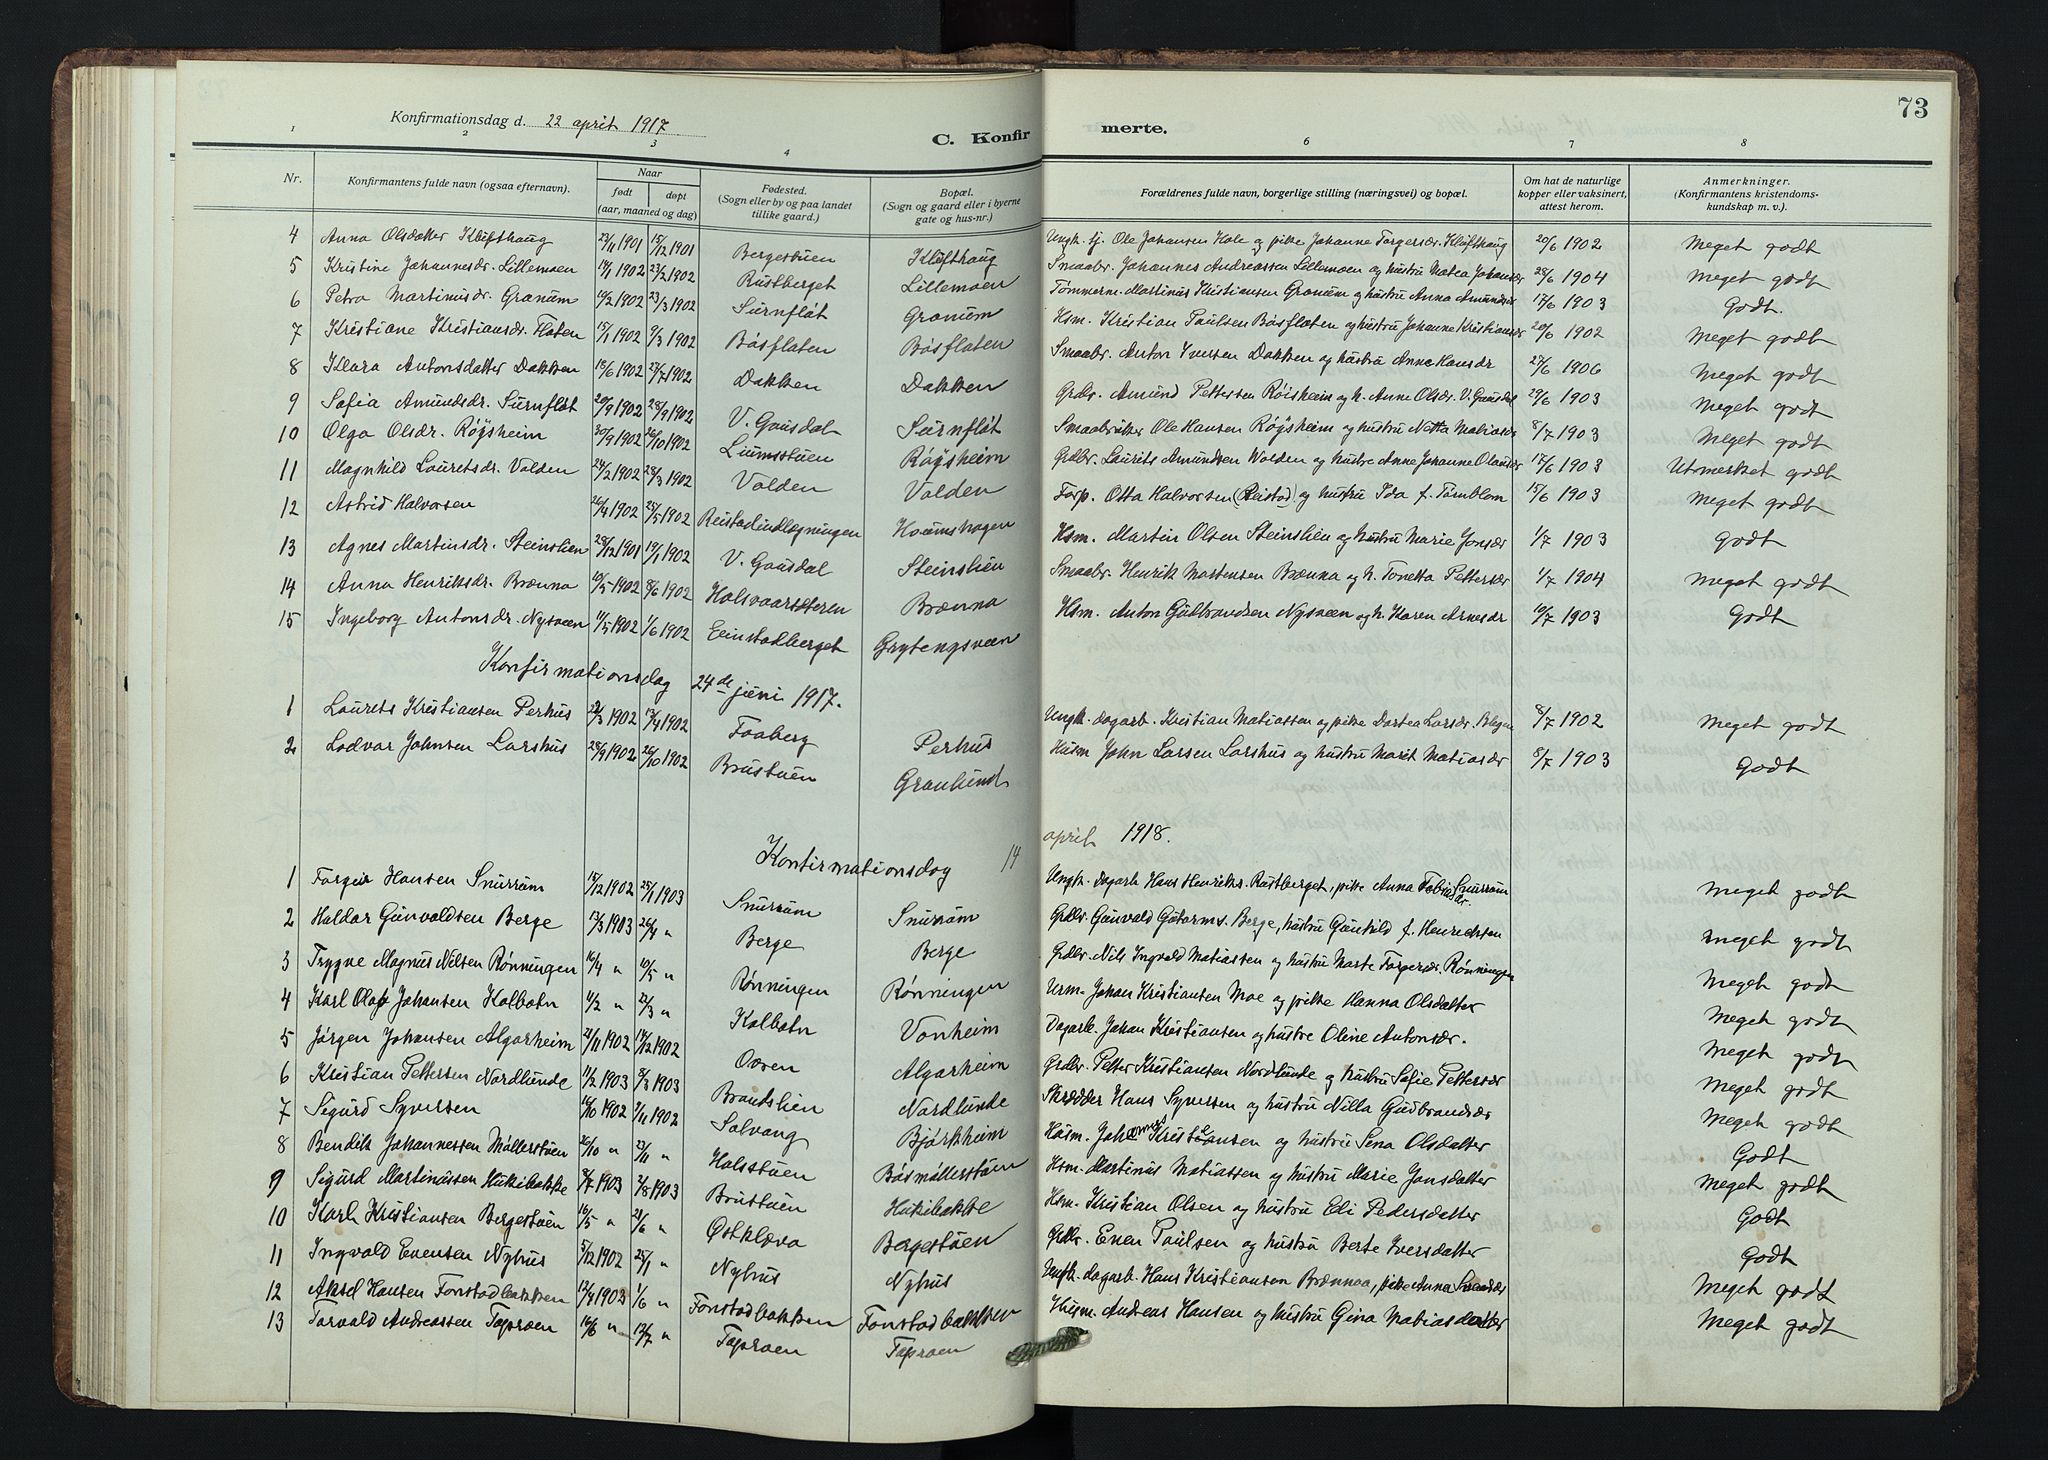 73
Konfirmationsdag d. 22 april 1917
C. Konfirmerte.
1 2 3 4 6 7 8
Nr. Konfirmantens fulde navn (ogsaa efternavn). Naar født døpt (aar, maaned og dag) Fødested. (Sogn eller by og paa landet tillike gaard.) Bopæl. (Sogn og gaard eller i byerne gate og hus-nr.) Forældrenes fulde navn, borgerlige stilling (næringsvei) og bopæl. Om hat de naturlige kopper eller vaksinert, attest herom. Anmerkninger. (Konfirmantens kristendomskundskap m. v.)
4 Anna Olsdatter Klufthaug 23/11 1901 15/12 1901 Bergestuen Klufthaug Ungk. tj. Ole Johansen Hole og pike Johanne Torgersdr. Klufthaug 20/6 1902 Meget godt
5 Kristine Johannesdr. Lillemoen 14/1 1902 23/2 1902 Rustberget Lillemoen Smaabr. Johannes Andreassen Lillemoen og hustru Matea Johansdr 28/6 1904 Meget godt
6 Petra Martinusdr. Granum 19/2 1902 23/3 1902 Surnflòt Granum Tømmerm. Martinus Kristiansen Granum og hustru Anna Amundsdr 17/6 1903 Godt.
7 Kristiane Kristiansdr. Flaten 15/1 1902 9/3 1902 Bøsflaten Bøsflaten Hsm. Kristian Paulsen Bøsflaten og hustru Johanne Kristiansdr 20/6 1902 Meget godt
8 Klara Antonsdatter Dakken 15/6 1902 27/7 1902 Dakken Dakken Smaabr. Anton Iversen Dakken og hustru Anne Hansdr 27/6 1906 Meget godt
9 Sofia Amundsdr. Surnflòt 20/9 1902 28/9 1902 V. Gausdal Surnflòt Grdbr. Amund Pettersen Røisheim og h. Anne Olsdr. V. Gausdal 29/6 1903 Meget godt
10 Olga Olsdr. Røysheim 30/9 1902 26/10 1902 Liumsstuen Røysheim Smaabruker Ole Hansen Røysheim og hustru Netta Matiasdr 8/7 1903 Meget godt
11 Magnhild Lauritsdr. Volden 24/2 1902 28/3 1902 Volden Volden Grdbr. Laurits Amundsen Volden og hustru Anne Johanne Olausdr 17/6 1903 Utmerket godt
12 Astrid Halvorsen 26/4 1902 25/5 1902 Reistadindlægningen Houmshagen Forp. Otto Halvorsen (Reistad) og hustru Ida f. Tørnblom 15/6 1903 Meget godt
13 Agnes Martinsdr. Steinslien 28/12 1901 19/1 1902 V. Gausdal Steinslien Hsm. Martin Olsen Steinslien og hustru Marie Jonsdr 1/7 1903 Godt
14 Anna Henriksdr. Brænna 10/5 1902 8/6 1902 Holsvaarsæteren Brænna Smaabr. Henrik Mortensen Brænna og h. Tonetta Pettersdr 1/7 1904 Meget godt
15 Ingeborg Antonsdr. Nysveen 11/5 1902 1/6 1902 Eeinstadberget Grytengsveen Hsm. Anton Gudbrandsen Nysveen og h. Karen Arnesdr 10/7 1903 Godt
Konfirmationsdag 24de juni 1917.
1 Laurits Kristiansen Perhus 22/3 1902 13/4 1902 Faaberg Perhus Ungk. dagarb. Kristian Matiassen og pike Dortea Larsdr. Blegen 8/7 1902 Meget godt
2 Lodvar Johnsen Larshus 28/9 1902 26/10 1902 Brustuen Graulund Husm John Larsen Larshus og hustru Marit Matiasdr 8/7 1903 Godt
Konfirmationsdag 14 april 1918.
1 Torgeir Hansen Snurrum 15/12 1902 25/1 1903 Snurrum Snurrum Ungk. dagarb Hans Henriks. Rustberget, pike Anna Tobiasdr. Snurrum Meget godt
2 Haldor Gunvaldsen Berge 13/3 1903 26/4 " Berge Berge Grdbr. Gunvald Gutorms. Berge, hustru Gunhild f. Henrichsen meget godt
3 Trygve Magnus Nilsen Rønningen 16/4 " 10/5 " Rønningen Rønningen Grdbr. Nils Ingvald Matiassen og hustru Marte Torgersdr. Rønningen Meget godt
4 Karl Olaf Johansen Kolbotn 11/2 " 22/3 " Kolbotn Vonheim Urm. Johan Kristiansen Moe og pike Hanna Olsdatter Meget godt
5 Jørgen Johansen Algarheim 21/11 1902 14/12 1902 Ooren Algarheim Dagarb. Johan Kristiansen og hustru Oline Antonsdr. Meget godt
6 Kristian Pettersen Nordlunde 11/2 1903 8/3 1903 Brandslien Nordlunde Grdbr. Petter Kristiansen Nordlunde og hustru Sofie Pettersdr Meget godt
7 Sigurd Syversen 14/10 1902 9/11 1902 Solvang Bjørkheim Skrædder Hans Syversen og hustru Nilla Gudbrandsdr Meget godt
8 Bendik Johannessen Møllerstuen 26/10 " 23/11 " Holstuen Bøsmøllerstuen Husm. Johannes Kristiansen og hustru Sena Olsdatter Godt
9 Sigurd Martinussen Hukibakke 8/7 1903 2/8 1903 Brustuen Hukibakke Hsm. Martinus Matiassen og hustru Marie Jonsdatter Meget godt
10 Karl Kristiansen Bergestuen 16/5 " 21/6 " Østkleva Bergestuen Hsm. Kristian Olsen og hustru Eli Pedersdatter Godt
11 Ingvald Evensen Nyhus 5/12 1902 25/1 " Nyhus Nyhus Grdbr. Even Paulsen og hustru Berte Iversdatter Godt
12 Aksel Hansen Fonstadbakken 13/4 1903 1/6 " Fonstadbakken Fonstadbakken Ungk. dagarb. Hans Kristiansen Brænnaa, pike Anna Meget godt
13 Torvald Andreassen Toproen 16/6 " 12/7 " Toproen Toproen Husm. Andreas Hansen og hustru Gina Matiasdatter Meget godt